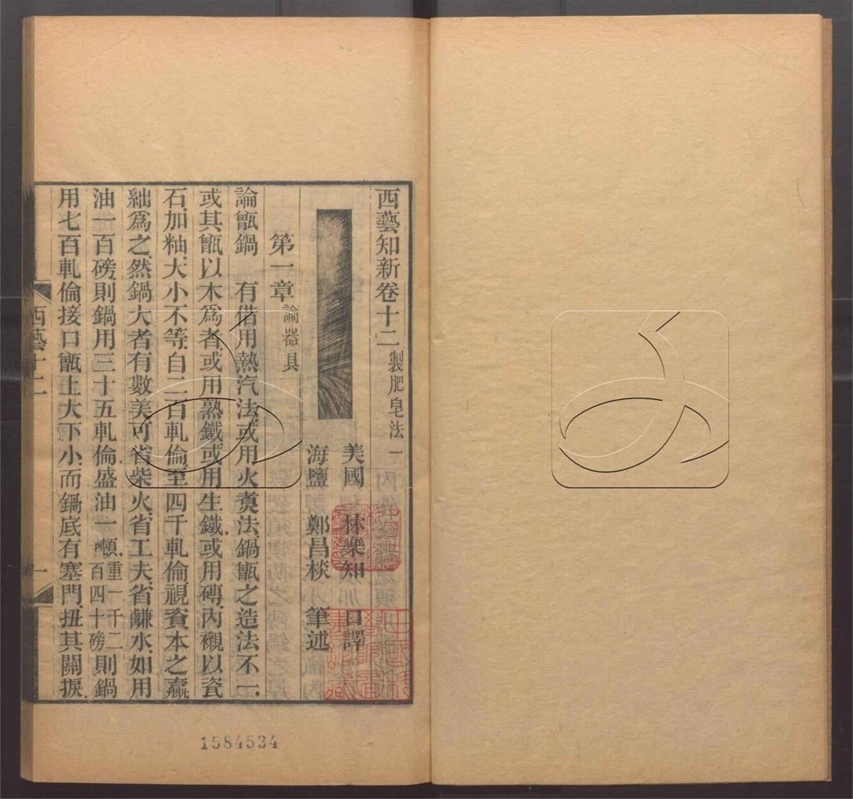 西藝知新卷十二 製肥皂法一
美國 林樂知 口譯
海鹽 鄭昌棪 筆述
第一章 論器具
論甑鍋 有借用熱汽法或用火煑法鍋甑之造法不一
或其甑以木爲者或用熟鐵或用生鐵或用磚內襯以瓷
石加釉大小不等自二百軋倫至四千軋倫視資本之贏
絀爲之然鍋大者有數美可省柴火省工夫省鹻水如用
油一百磅則鍋用三十五軋倫盛油一頓重一千二百四十磅則鍋
用七百軋倫接口甑上大下小而鍋底有塞門扭其關捩
西藝十二
一
1584534